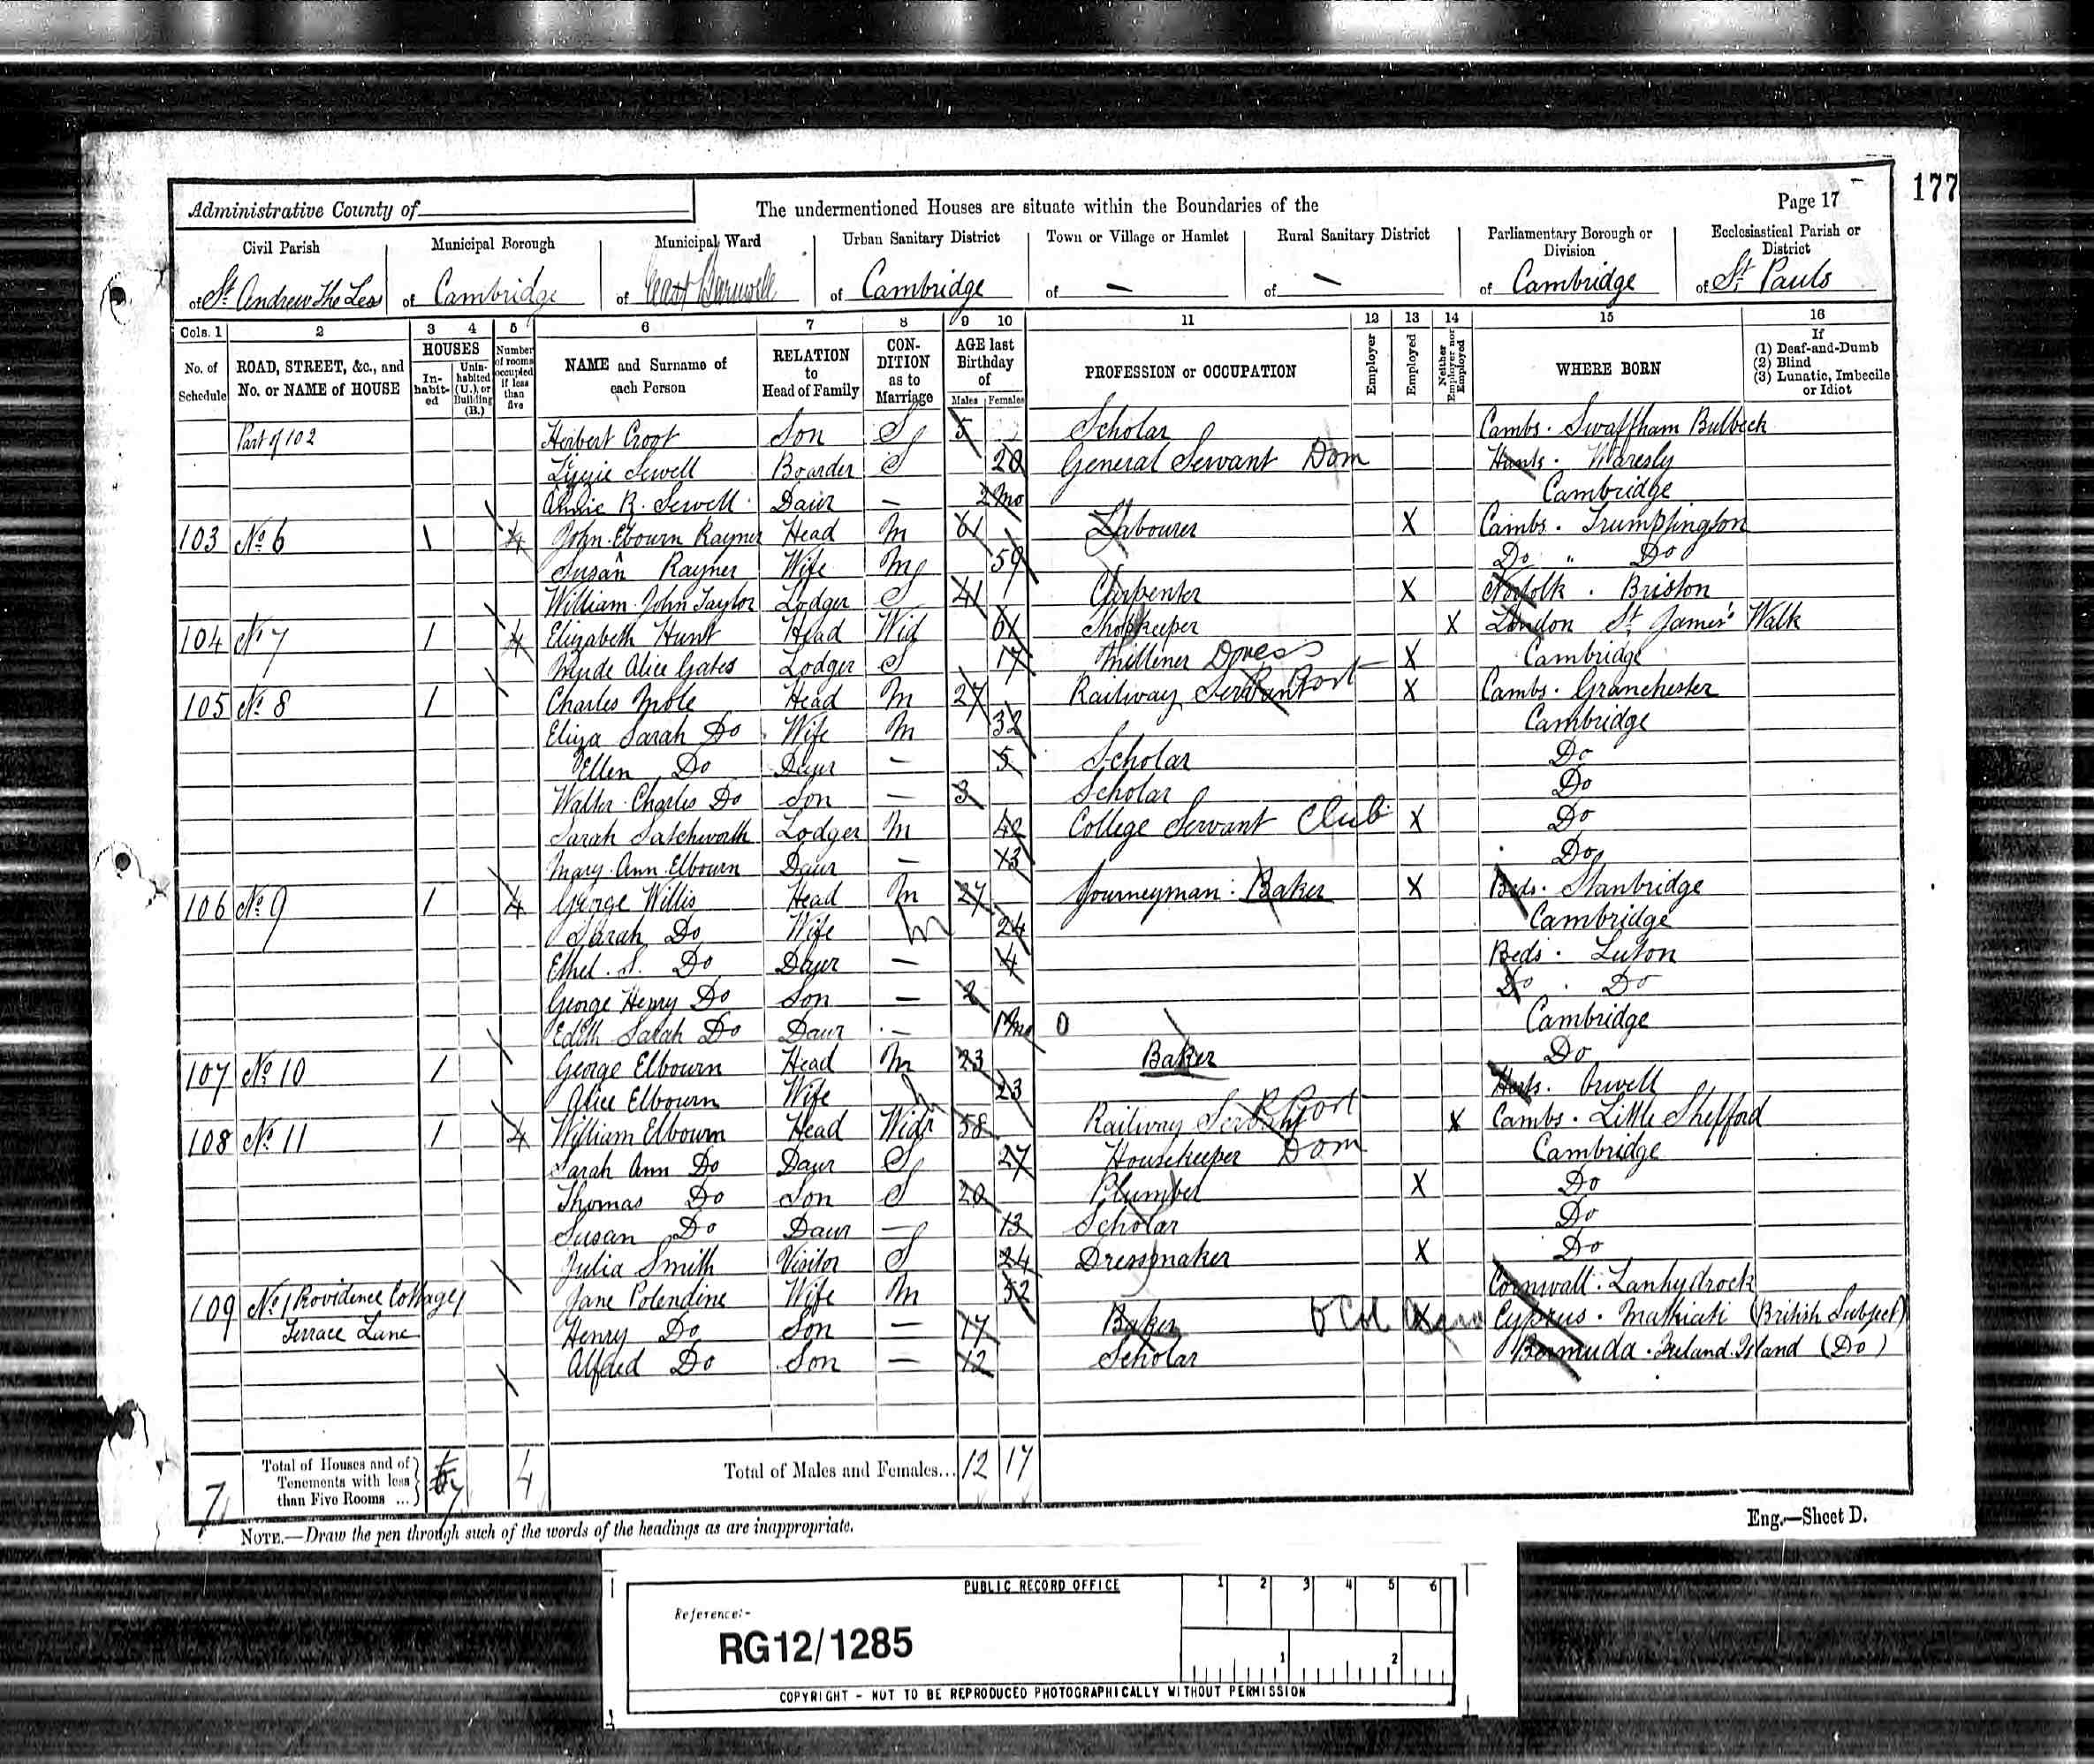 177
Administrative County of
The undermentioned Houses are situate within the Boundaries of the
Page 17
Civil Parish
Municipal Borough
Municipal Ward
Urban Sanitary District
Town or Village or Hamlet
Rural Sanitary District
Parliamentary Borough or Division
Ecclesiastical Parish or District
of St. Andrew The Less
of Cambridge
of East Barnwell
of Cambridge
of —
of —
of Cambridge
of St. Pauls
Cols. 1 2 3 4 5 6 7 8 9 10 11 12 13 14 15 16
No. of Schedule
ROAD, STREET, &c., and No. or NAME of HOUSE
HOUSES
Inhabited
Uninhabited (U.), or Building (B.)
Number of rooms occupied if less than five
NAME and Surname of each Person
RELATION to Head of Family
CONDITION as to Marriage
AGE last Birthday of
Males Females
PROFESSION or OCCUPATION
Employer
Employed
Neither Employer nor Employed
WHERE BORN
If
(1) Deaf-and-Dumb
(2) Blind
(3) Lunatic, Imbecile or Idiot
Part of 102 Herbert Croot Son S 5 Scholar Cambs. Swaffham Bulbeck
Lizzie Sewell Boarder S 20 General Servant Dom Hunts. Waresly
Annie R. Sewell Daur — 2 Mo Cambridge
103 No 6 1 4 John Ebourn Rayner Head M 61 Labourer X Cambs. Trumpington
Susan Rayner Wife M 59 Do " Do
William John Taylor Lodger S 41 Carpenter X Norfolk. Briston
104 No 7 1 4 Elizabeth Hunt Head Wid 61 Shopkeeper X London St. James's Walk
Alice Gates Lodger S 17 Milliner Dress X Cambridge
105 No 8 1 Charles Mole Head M 27 Railway Servant R Port X Cambs. Granchester
Eliza Sarah Do Wife M 32 Cambridge
Ellen Do Daur — 5 Scholar Do
Walter Charles Do Son — 3 Scholar Do
Sarah Satchworth Lodger M 42 College Servant Club X Do
Mary Ann Elbourn Daur — 13 Do
106 No 9 1 4 George Willis Head M 27 Journeyman: Baker X Beds. Stanbridge
Sarah Do Wife M 24 Cambridge
Ethel. S. Do Daur — 4 Beds. Luton
George Henry Do Son — 2 Do. Do
Edith Sarah Do Daur — 1 Mo 0 Cambridge
107 No 10 1 George Elbourn Head M 23 Baker Do
Alice Elbourn Wife 23 Herts. Orwell
108 No 11 1 4 William Elbourn Head Widr 58 Railway Servant R Port X Cambs. Little Shefford
Sarah Ann Do Daur S 27 Housekeeper Dom Cambridge
Thomas Do Son S 20 Plumber X Do
Susan Do Daur — 13 Scholar Do
Julia Smith Visitor S 24 Dressmaker X Do
109 No 1 Providence Cottages Jane Polendine Wife M 52 Cornwall. Lanhydrock
Terrace Lane Henry Do Son — 17 Baker X Cyprus. Mathiati (British Subject)
Alfred Do Son — 12 Scholar Bermuda. Ireland Island (Do)
7
Total of Houses and of Tenements with less than Five Rooms ...
7
4
Total of Males and Females...
12 17
NOTE.—Draw the pen through such of the words of the headings as are inappropriate.
Eng.—Sheet D.
PUBLIC RECORD OFFICE
1 2 3 4 5 6
Reference:-
RG12/1285
1 2
COPYRIGHT - NOT TO BE REPRODUCED PHOTOGRAPHICALLY WITHOUT PERMISSION